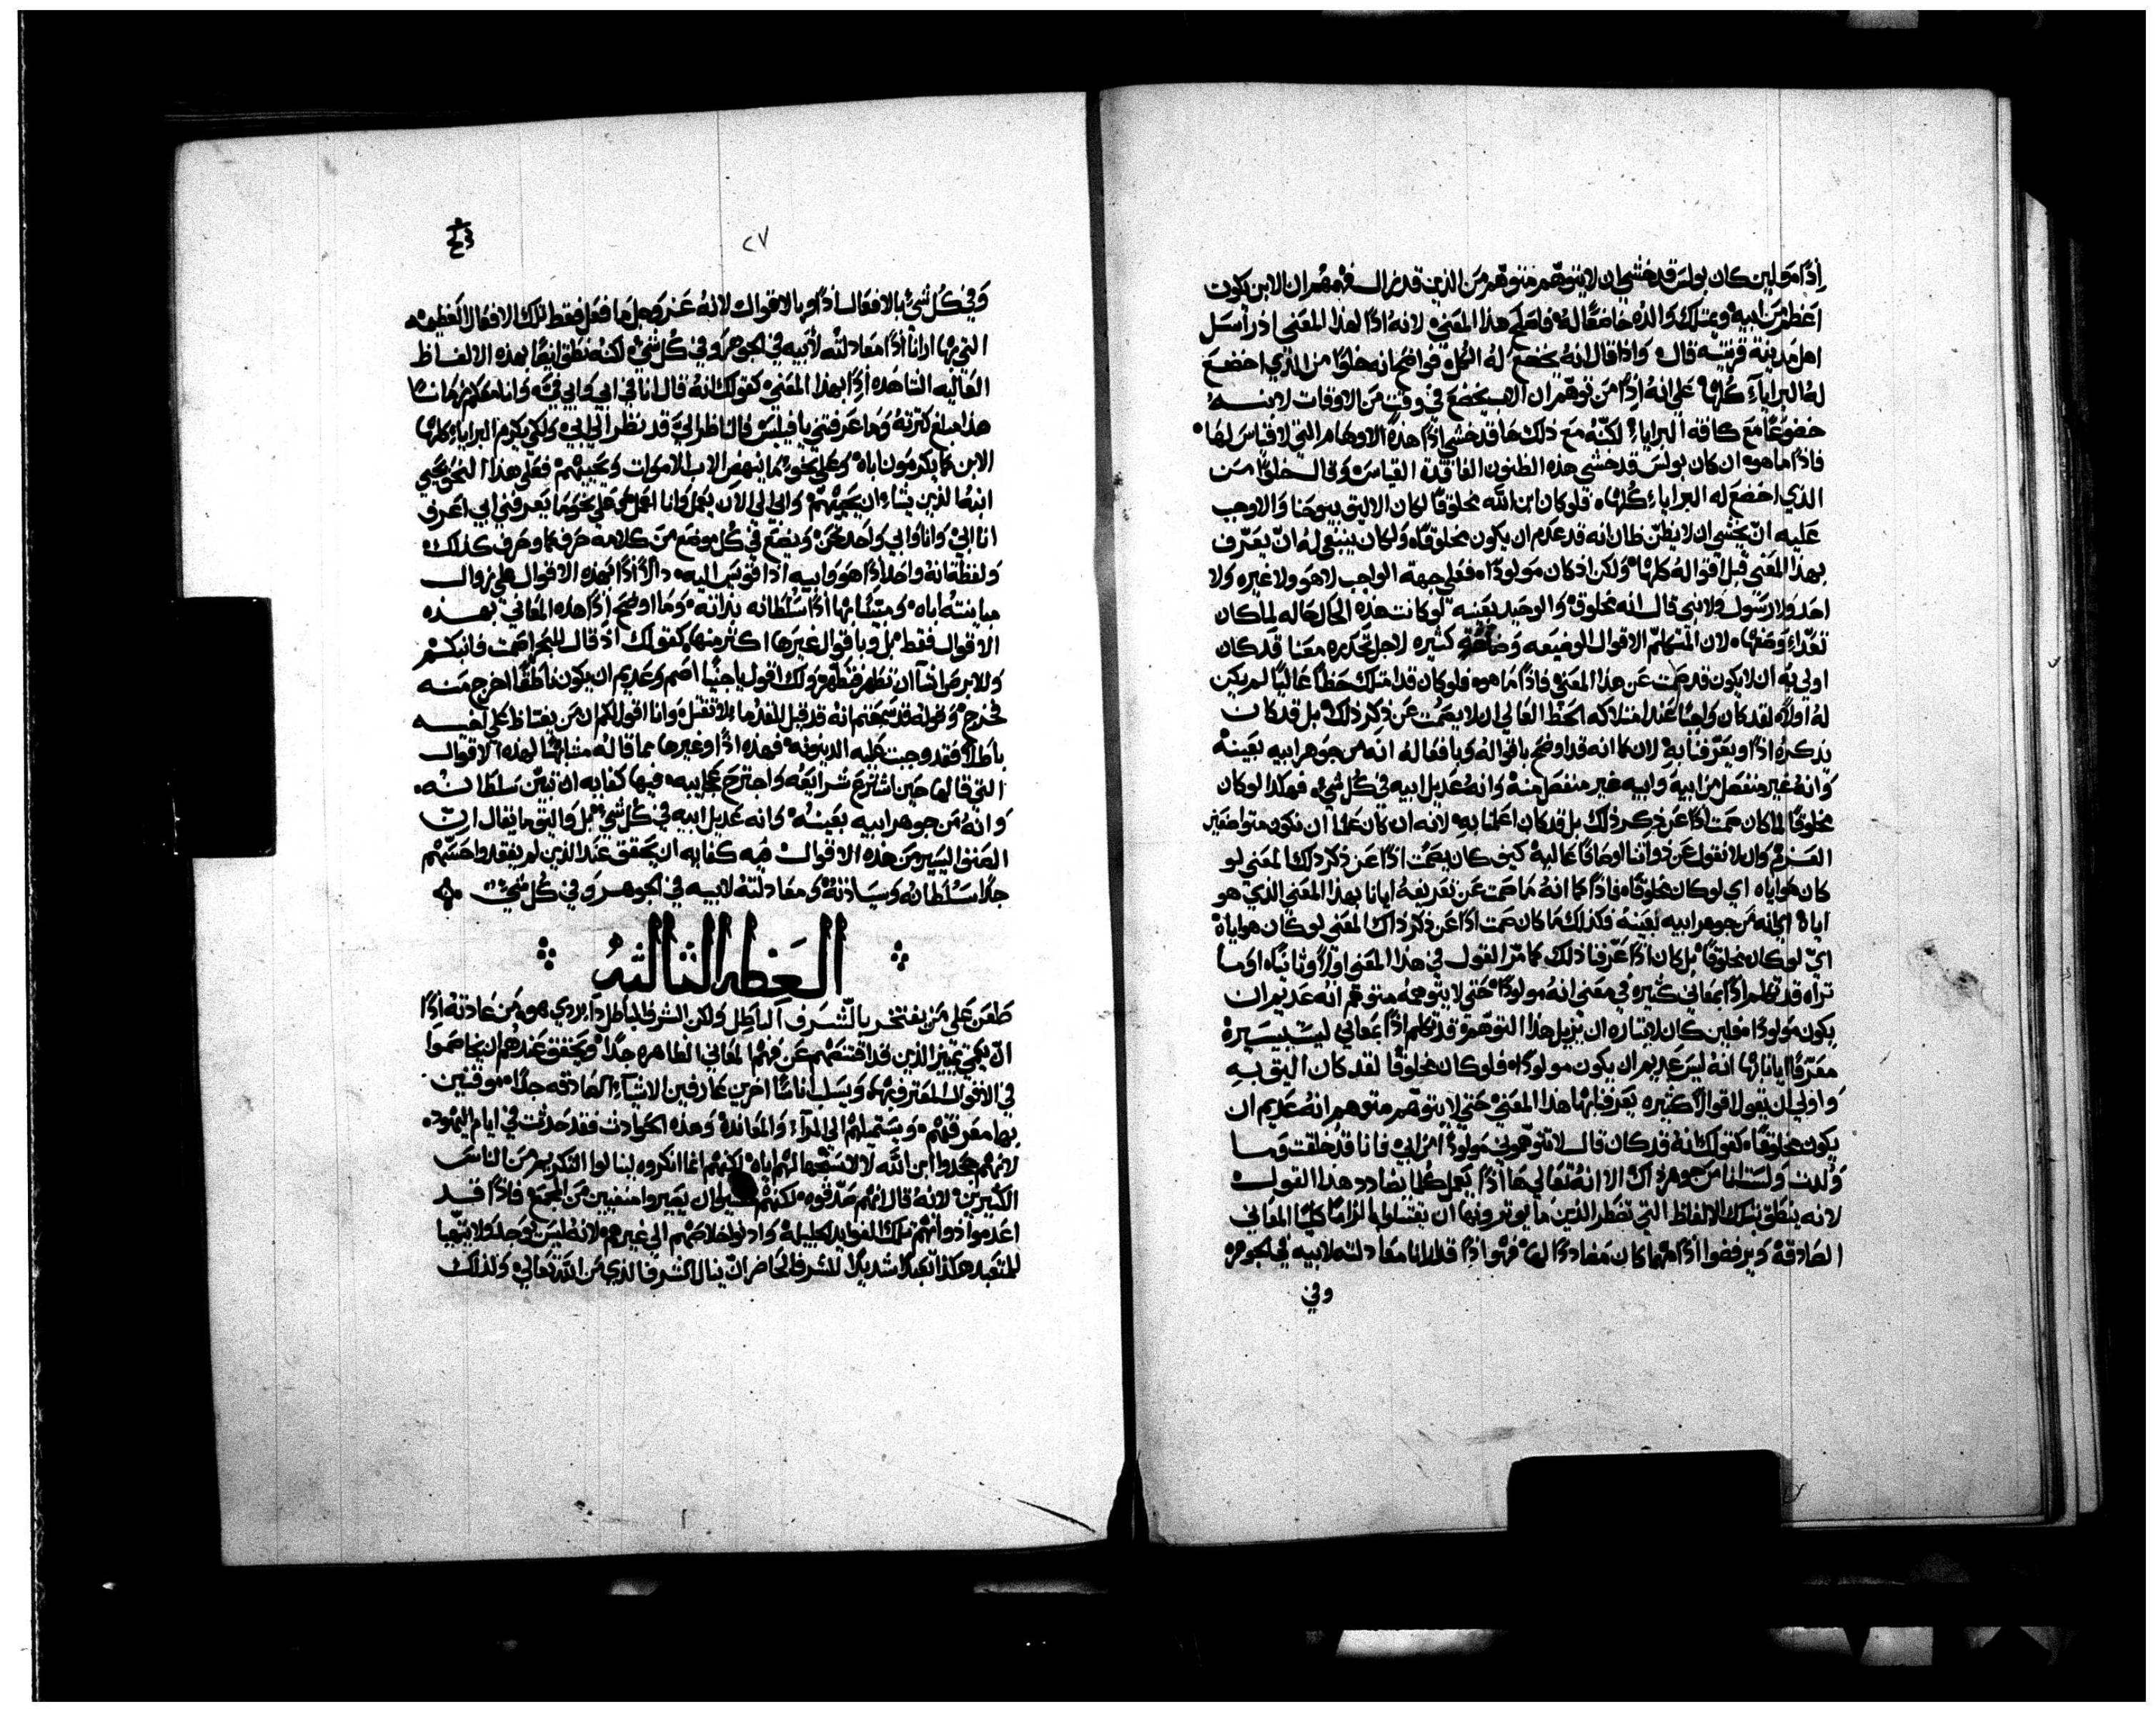 اذًا مولين كان بولس قد خشي ان لا يتوهم متوهم من الذين قد ان الابن يكون
اعظم من ابيه ويمتلك والده خاضعًا له فاصلح هذا المعني لانه اذًا لهذا المعني اذ راسل
اهل مدينة قرنتيه قال واذا قال انه يخضع له الكل فواضح انه خلوًا من الذي اخضع
له البرايا كلها علي انه اذًا من توهم ان الاب يخضع في وقت من الاوقات لابنه
خضوعًا مع كافه البرايا لكنه مع ذلك ها قد خشي اذًا هذه الاوهام التي لا قياس لها
فاذًا ما هو ان كان بولس قد خشي هذه الظنون الفاقدة القياس وقال خلوًا من
الذي اخضع له البرايا كلها فلو كان ابن الله مخلوقًا لكان الاليق بيوحنا والاوجب
عليه ان يخشي ان لا يظن ظان انه قد عدم ان يكون مخلوقًا ولكان ينبغي له ان يعرف
بهذا المعني قبل اقواله كلها ولكن اذ كان مولودًا فعلي جهة الواجب لا هو ولا غيره ولا
احد ولا رسول ولا نبي قال انه مخلوق والوحيد بعينه لو كانت هذه الحال حاله لما كان
لان المتكلم الاقوال الوضيعه كثيره لاجل تحديره معنا قد كان
اولي به ان لا يكون قد صمت عن هذا المعني فاذًا ما هو فلو كان قد امتلك حظًا عاليًا لم يكن
له اولاً لقد كان واجبًا عند امتلاكه الحظ العالي ان لا يصمت عن ذكر ذلك بل قد كان
يذكره اذًا ويعرفنا به لان كما انه قد اوضح باقواله وبافعاله انه من جوهر ابيه بعينه
وانه غير منفصل من ابيه وابيه غير منفصل منه وانه عديل ابيه في كل شي فهكذا لو كان
مخلوقًا لما كان صمت اذًا عن ذكر ذلك بل قد كان اعلمنا به لانه ان كان علمنا ان نكون متواضعين
العزم وان لا نقول عن ذواتنا اوصافًا عالية كيف كان يصمت اذًا عن ذكر ذلك المعني لو
كان هو اياه اي لو كان مخلوقًا فاذًا كما انه ما صمت عن تعريفه ايانا بهذا المعني الذي هو
اياه اي انه من جوهر ابيه بعينه فكذلك ما كان صمت اذًا عن ذكر ذاك المعني لو كان هو اياه
اي لو كان مخلوقًا بل كان اذًا عرفنا ذلك كما مر القول في هذا المعني اولاً وثانيًا او ما
تراه قد تكلم اذًا بمعاني كثيره في معني انه مولودًا حتي لا يتوهمه متوهم انه عديم ان
يكون مولودًا فلين كان ان يزيل هذا التوهم قد تكلم اذًا بمعاني ليست يسيرة
معرفًا ايانا بها انه ليس عديم ان يكون مولودًا فلو كان مخلوقًا لقد كان اليق به
واولي ان يقول اقوالاً كثيره يعرفنا بها هذا المعني حتي لا يتوهم متوهم انه عديم ان
يكون مخلوقًا كقولك انه قد كان قال لا تتوهموني مولودًا من ابي فانا قد خلقت وما
ولدت ولست انا من جوهر ذاك الا انه تعالي ها اذًا يعمل كلما يضادد هذا القول
لانه ينطق بتلك الالفاظ التي تضطر الذين ما يوثرونها ان يقتبلوا الزامًا كليًا المعاني
الصادقة ويرفضوا اذًا مهما كان مضاددًا لها فهو اذًا قد ارانا معادلته لابيه في الجوهر
وفي
٢٧
وفي كل شي بالافعال اذًا وبالاقوال لانه عز وجل ما فعل فقط تلك الافعال العظيمه
التي بها ارانا اذًا معادلته لابيه في الجوهر وفي كل شي لكنه نطق ايضًا بهذه الالفاظ
العاليه الشاهده اذًا بهذا المعني كقولك انه قال انا في ابي وابي في وانا معكم زمانًا
هذا مبلغ كثرته وما عرفتني يا فيلبس فالناظر الي قد نظر الي ابي ولكي يكرم البرايا كلها
الابن كما يكرمون اباه وعلي نحو ما ينهض الاب الاموات ويحييهم فعلي هذا النحو يحيي
ابنه الذين يشاء ان يحييهم وابي الي الان يعمل وانا اعمل وعلي نحو ما يعرفني ابي اعرف
انا ابي وانا وابي واحد نحن ويضع في كل موضع من كلامه حرف كما وحرف كذلك
ولفظة انه واحدًا هو وابيه اذا قويس اليه دالاً اذًا بهذه الاقوال علي زوال
مباينته اباه ومبينًا بها اذًا سلطانه بذاته وما اوضح اذًا هذه المعاني بهذه
الاقوال فقط بل وباقوال غيرها اكثر منها كقولك اذ قال للبحر اصمت فانبكم
وللابرص انا اشا ان تطهر فتطهر ولك اقول يا جنيًا اصم وعديم ان يكون ناطقًا اخرج منه
فخرج وقوله قد سمعتم انه قد قيل للقدماء لا تقتل وانا اقول لكم ان من يغتاظ علي اخيه
باطلاً فقد وجبت عليه الدينونه فهذه اذًا وغيرها مما قاله مشابهًا لهذه الاقوال
التي قالها حين اشترع شرايعه واجترح عجايبه فيها كفايه ان تبين سلطانه
وانه من جوهر ابيه بعينه وانه عديل ابيه في كل شي بل واليق ما يقال ان
الصنف اليسير من هذه الاقوال فيه كفايه ان يحقق عند الذين لم يفقدوا حسهم
جدًا سلطانه وسيادته ومعادلته لابيه في الجوهر وفي كل شي
العظه الثالثه
طعن علي من يفتخر بالشرف الباطل ولكن الشرف الباطل دآ ردي هو من عادته اذًا
ان يعمي تمييز الذين قد اقتنصهم عن فهم المعاني الظاهره جدًا ويحقق عندهم ان يخاصموا
في الاقوال المعترف بها ويسلب اناسًا اخرين عارفين الاشيآء الصادقه جدًا موقنين
بها معرفتهم ويستميلهم الي المرآء والمعانده وهذه الحوادث فقد حدثت في ايام اليهود
لانهم جحدوا ابن الله لا لاستجهالهم اياه لكنهم انما انكروه لينالوا التكريم من الناس
الكثيرين لانه قال انهم صدقوه لكنهم ان يصيروا منفيين من المجمع فاذًا قد
اعدموا ذواتهم تلك الفوايد الجليلة واد خلاصهم الي غيرهم لانه ليس يوجد ولا يتهيا
للمتعبد هكذا تعبدًا شديدًا للشرف الحاضر ان ينال الشرف الذي من الله تعالي ولذلك